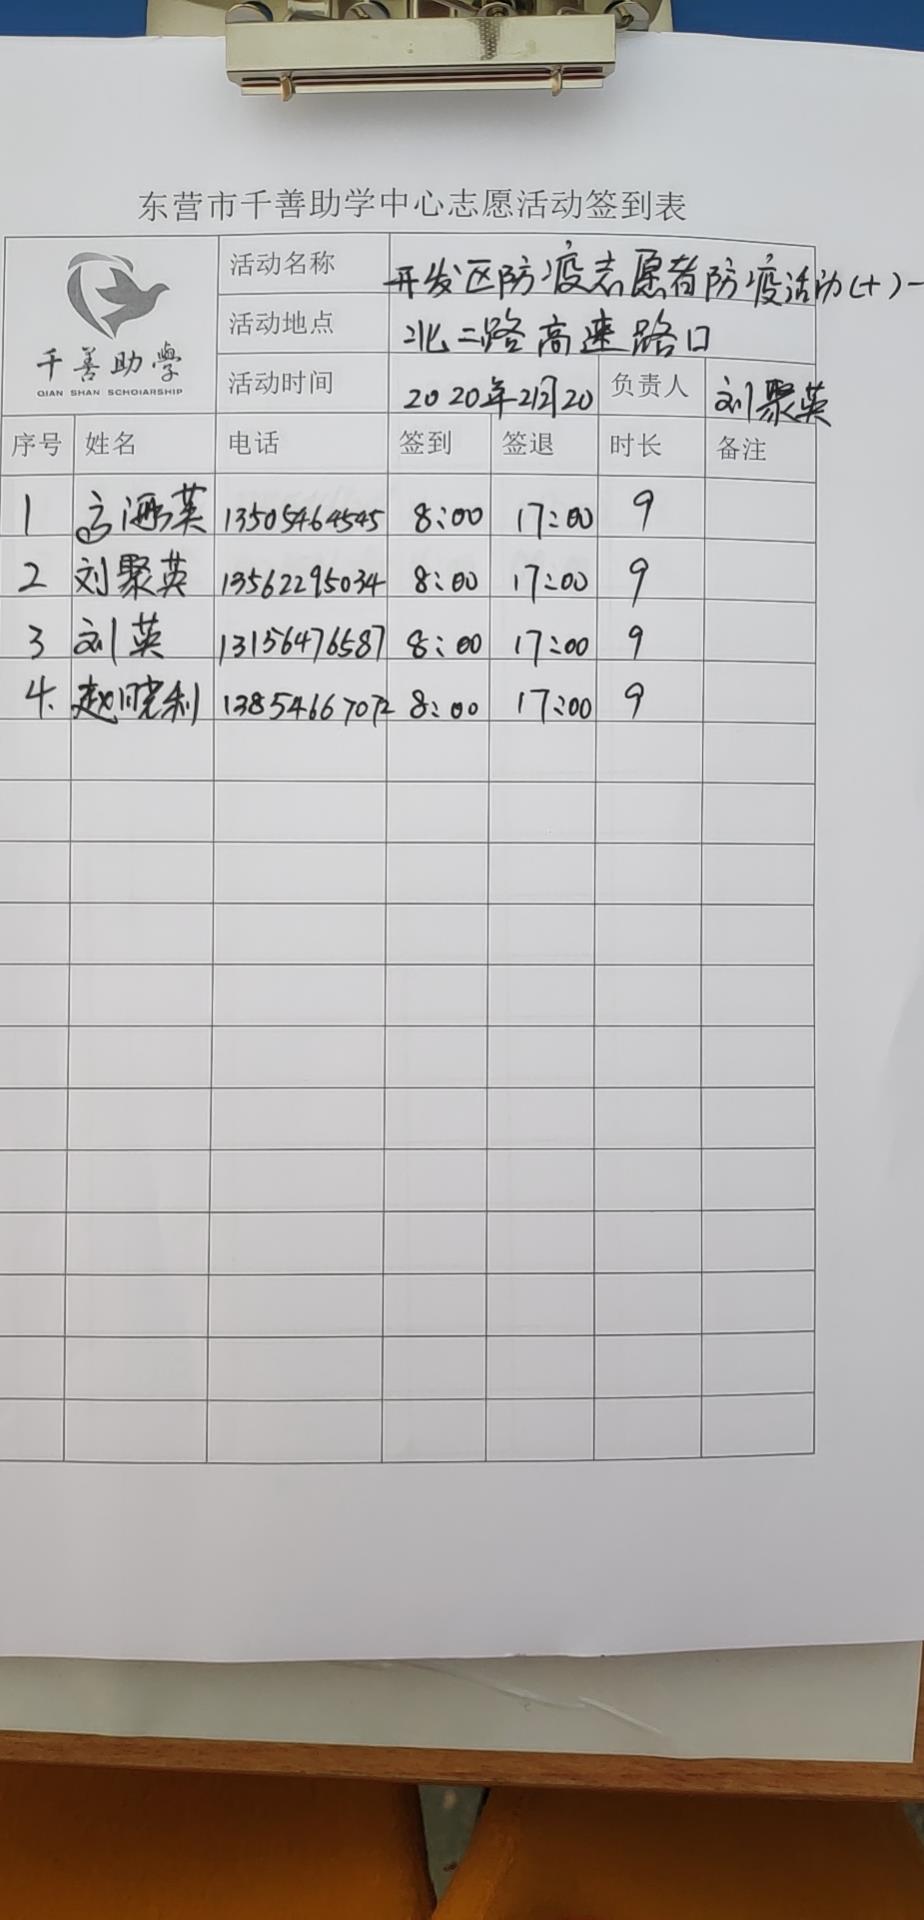 东营市千善助学中心志愿活动签到表
千善助學
QIAN SHAN SCHOIARSHIP
活动名称 开发区防疫志愿者防疫活动(十)一
活动地点 北二路高速路口
活动时间 2020年2月20 负责人 刘聚英
序号 姓名 电话 签到 签退 时长 备注
1 英 13505464545 8:00 17:00 9
2 刘聚英 13562295034 8:00 17:00 9
3 刘英 13156476587 8:00 17:00 9
4. 赵晓利 13854667072 8:00 17:00 9